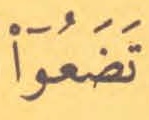 تَضَعُوٓاْ